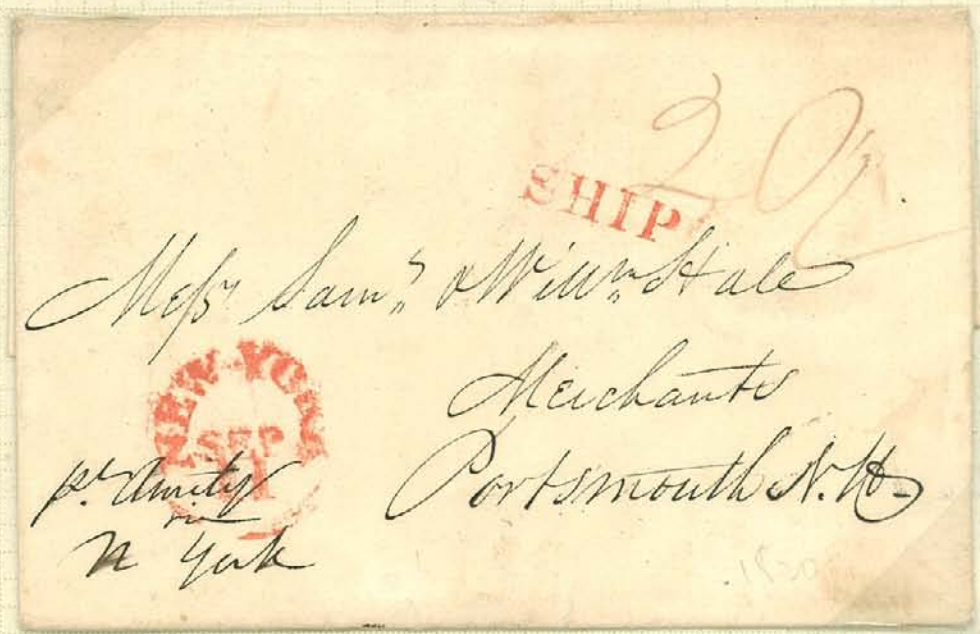 20½
SHIP
Messrs Saml & Willm Hale
Merchants
Portsmouth N.H.
NEW-YORK
SEP
1
pr Amity
via
N York
1830